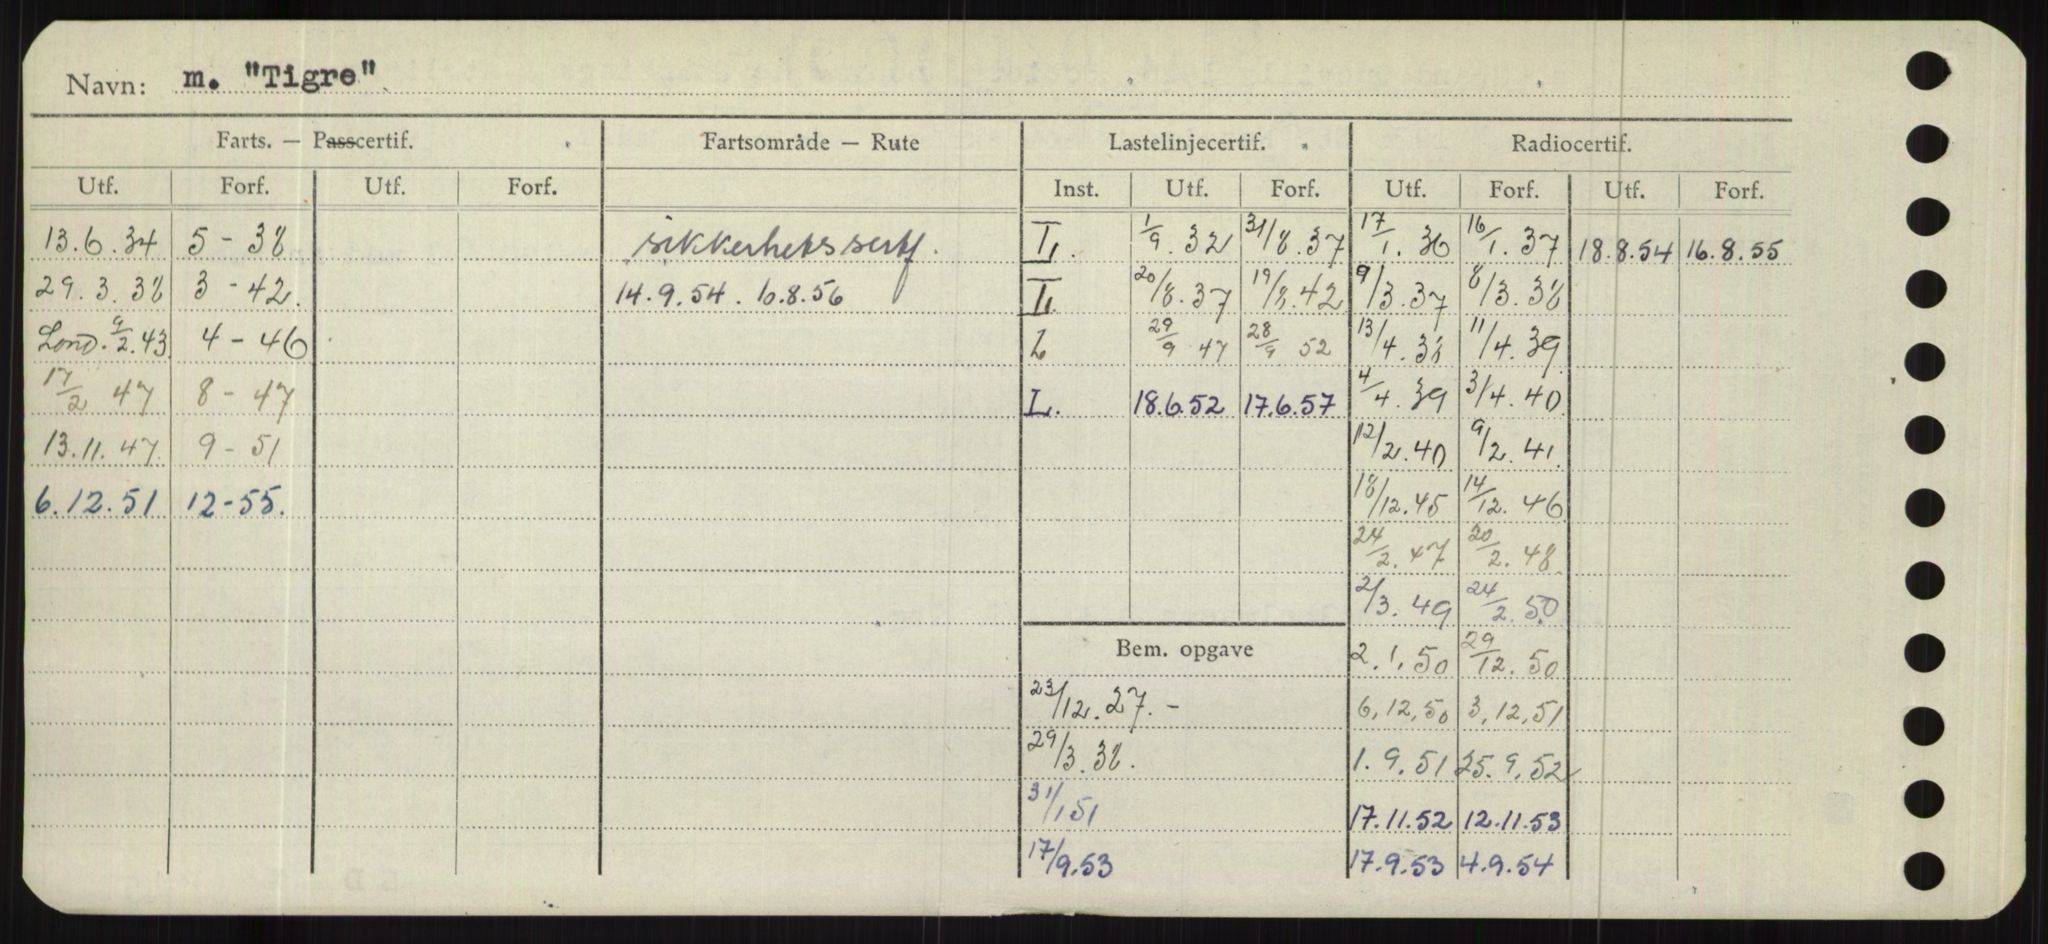 Navn: m. "Tigre"
Farts. — Passcertif. Fartsområde — Rute Lastelinjecertif. Radiocertif.
Utf. Forf. Utf. Forf. Inst. Utf. Forf. Utf. Forf. Utf. Forf.
13.6.34 5 - 38 sikkerhetssertf. L. 1/9.32 31/8.37 17/1.36 16/1.37 18.8.54 16.8.55
29.3.38 3 - 42. 14.9.54. 10.8.56 L. 20/8.37 19/8.42 9/3.37 8/3.38
Lond. 9/2.43 4 - 46 L 29/9 47 28/9 52 13/4.38 11/4.39
17/2 47 8 - 47 L. 18.6.52 17.6.57 4/4.39 3/4.40
13.11.47. 9 - 51 12/2.40 9/2.41.
6.12.51 12-55. 18/12.45 14/12.46
24/2.47 20/2.48
2/3.49 24/2.50
Bem. opgave 2.1.50 29/12.50
23/12.27. - 6,12,50 3,12,51
29/3.38. 1.9.51 25.9.52
31/1 51 17.11.52 12.11.53
17/9.53 17.9.53 4.9.54